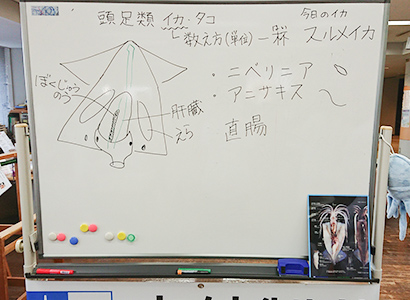 頭足類 イカ・タコ
数え方(単位) 一杯
今日のイカ
スルメイカ
・ニベリニア
・アニサキス
直腸
ぼくじゅう
のう
肝臓
えら